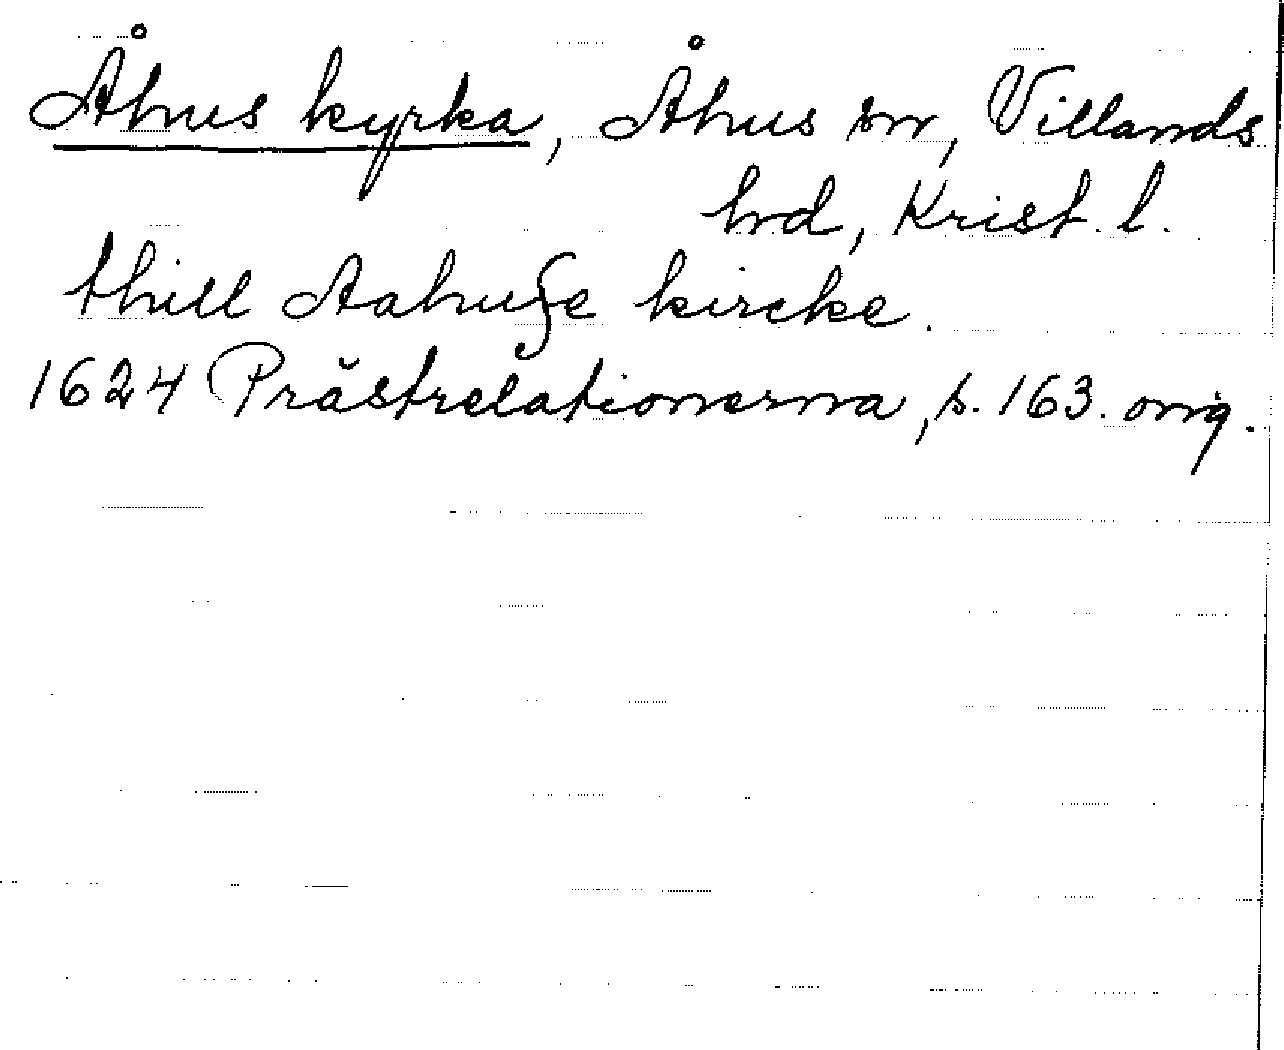 Åhus kyrka, Åhus sn, Villands
hrd, Krist. l.
thill Aahuße kircke.
1624 Prästrelationerna, s. 163. orig.